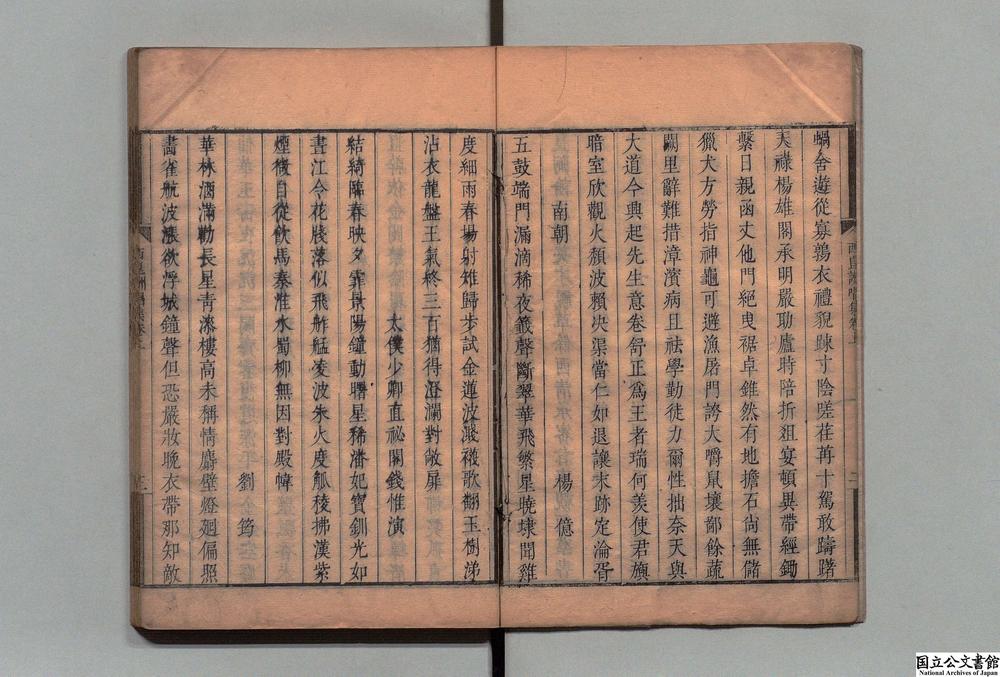 蝸舍遊從寡鶉衣禮貌踈寸陰嗟荏苒十駕敢躊躇
天祿楊雄閣承明嚴助廬時陪折俎宴頓異帶經鋤
繫日親函丈他門絕曳裾卓錐然有地擔石尚無儲
獵犬方勞指神龜可避漁屠門誇大嚼鼠壤鄙餘蔬
闕里辭難措漳濱病且祛學勤徒力爾性拙奈天與
大道今興起先生意卷舒正爲王者瑞何羨使君旟
暗室欣觀火頹波賴決渠當仁如退讓末跡定淪胥
南朝　楊億
五鼓端門漏滴稀夜籤聲斷翠華飛繁星曉埭聞雞
度細雨春場射雉歸步試金蓮波濺襪歌翻玉樹涕
沾衣龍盤王氣終三百猶得澄瀾對敞扉
太僕少卿直祕閣錢惟演
結綺臨春映夕霏景陽鐘動曙星稀潘妃寶釧光如
晝江令花牋落似飛舴艋凌波朱火度觚稜拂漢紫
煙微自從飲馬秦淮水蜀柳無因對殿幃
劉筠
華林酒滿勸長星青漆樓高未稱情麝壁燈迴偏照
晝雀航波漲欲浮城鐘聲但恐嚴妝晚衣帶那知敵
西崑酬唱集卷上
二
西崑酬唱集卷上
三
国立公文書館
National Archives of Japan